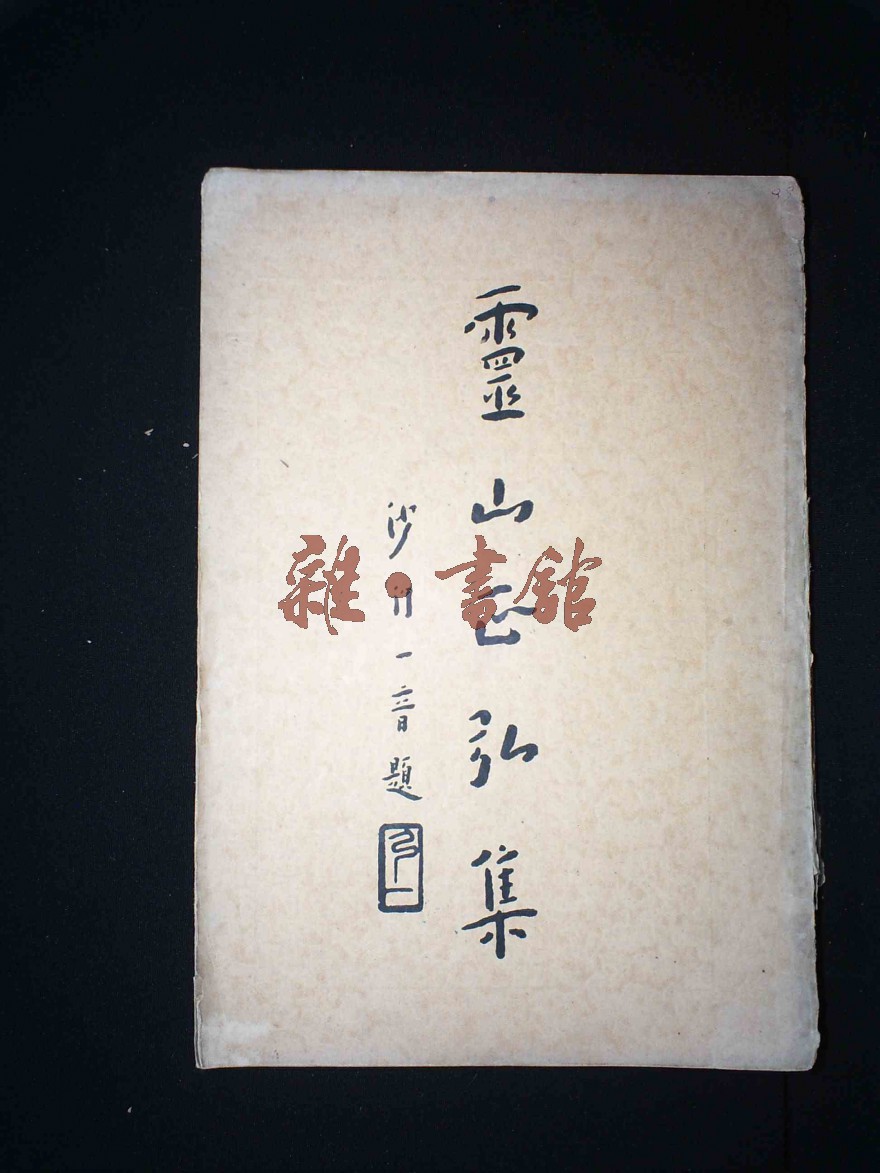 靈山正弘集
沙門一音題
弘一
雜·書館